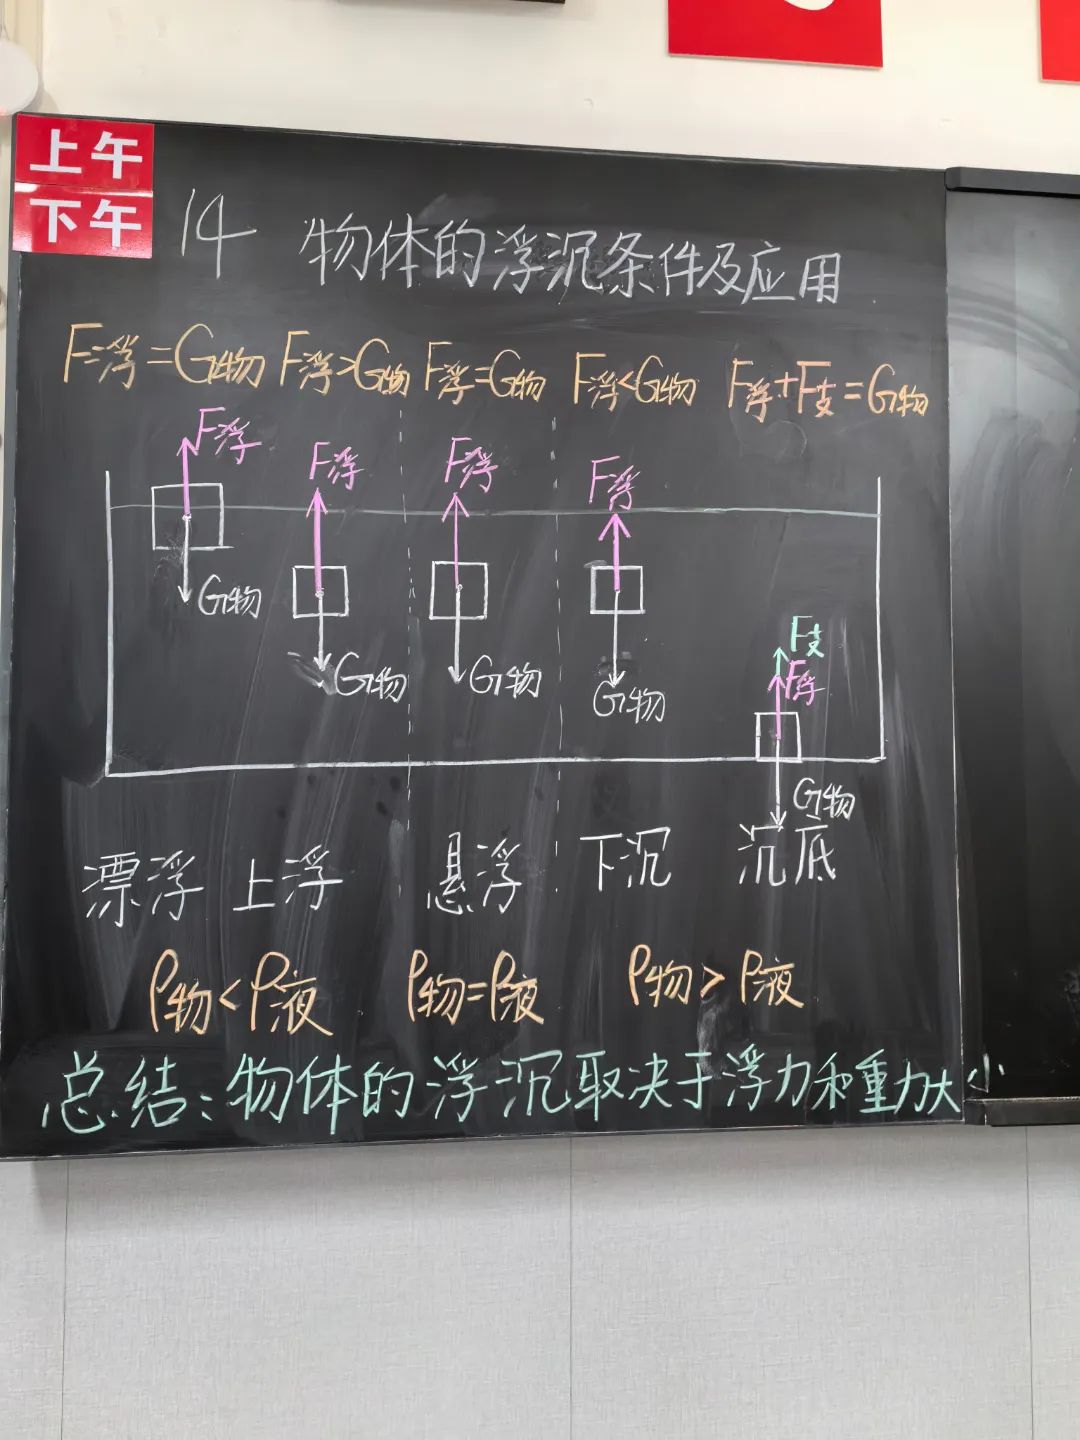 上午
下午
14 物体的浮沉条件及应用
F浮=G物 F浮>G物 F浮=G物 F浮<G物 F浮+F支=G物
F浮 F浮 F浮 F浮
G物 G物 G物 G物
F支
F浮
G物
漂浮 上浮 悬浮 下沉 沉底
ρ物<ρ液 ρ物=ρ液 ρ物>ρ液
总结:物体的浮沉取决于浮力和重力大小